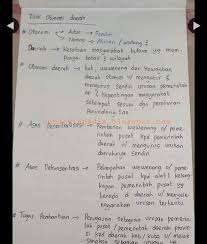 Teori Otonomi daerah
* Otonomi → Autos → Sendiri
→ Nomos → Aturan / undang²
Daerah → Kesatuan masyarakat hukum yg mem-
punyai batas² wilayah
* Otonomi daerah → hak, wewenang dan kewajiban
daerah otonom u/ mengatur &
mengurus sendiri urusan pemerintah
an & kepentingan masyarakat
setempat sesuai dgn peraturan
perundang-an
* Asas Desentralisasi → Pemberian wewenang o/ peme-
rintah pusat kpd pemerintah
daerah u/ mengurus urusan
daerahnya sendiri
* Asas Dekonsentrasi → Pelimpahan wewenang o/ peme-
rintah pusat kpd alat² keleng
kapan pemerintah pusat yg
berada di daerah u/
urusan tertentu
* Tugas Pembantuan → Penugasan sebagian urusan peme-
rintah dan pemerintah daerah provin
si kpd daerah kab/kota u/ melak
sanakan sebagian urusan